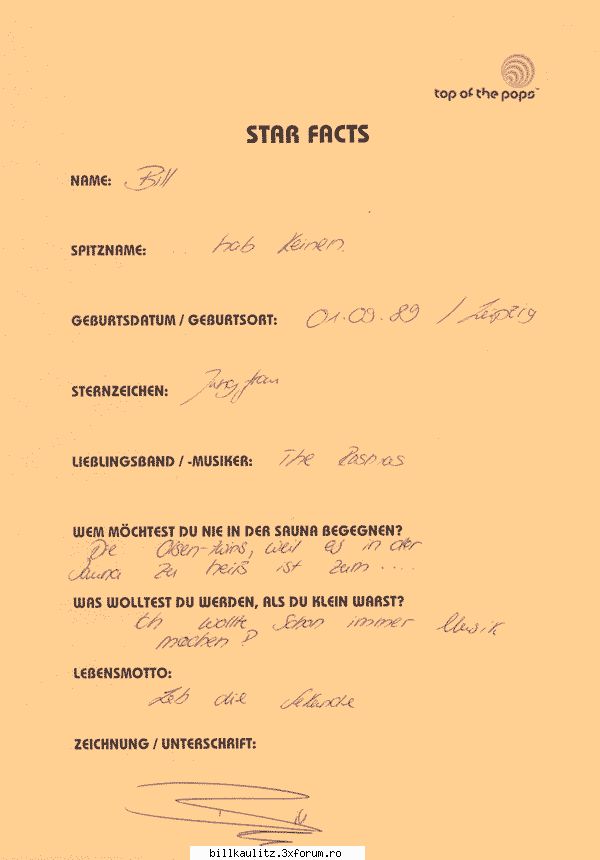 top of the pops™
STAR FACTS
NAME: Bill
SPITZNAME: hab keinen.
GEBURTSDATUM / GEBURTSORT: 01.09.89 / Leipzig
STERNZEICHEN: Jungfrau
LIEBLINGSBAND / -MUSIKER: The Rasmus
WEM MÖCHTEST DU NIE IN DER SAUNA BEGEGNEN?
Die Olsen-twins, weil es in der
Sauna zu heiß ist zum ....
WAS WOLLTEST DU WERDEN, ALS DU KLEIN WARST?
Ich wollte schon immer Musik
machen
LEBENSMOTTO:
Leb die Sekunde
ZEICHNUNG / UNTERSCHRIFT:
billkaulitz.3xforum.ro